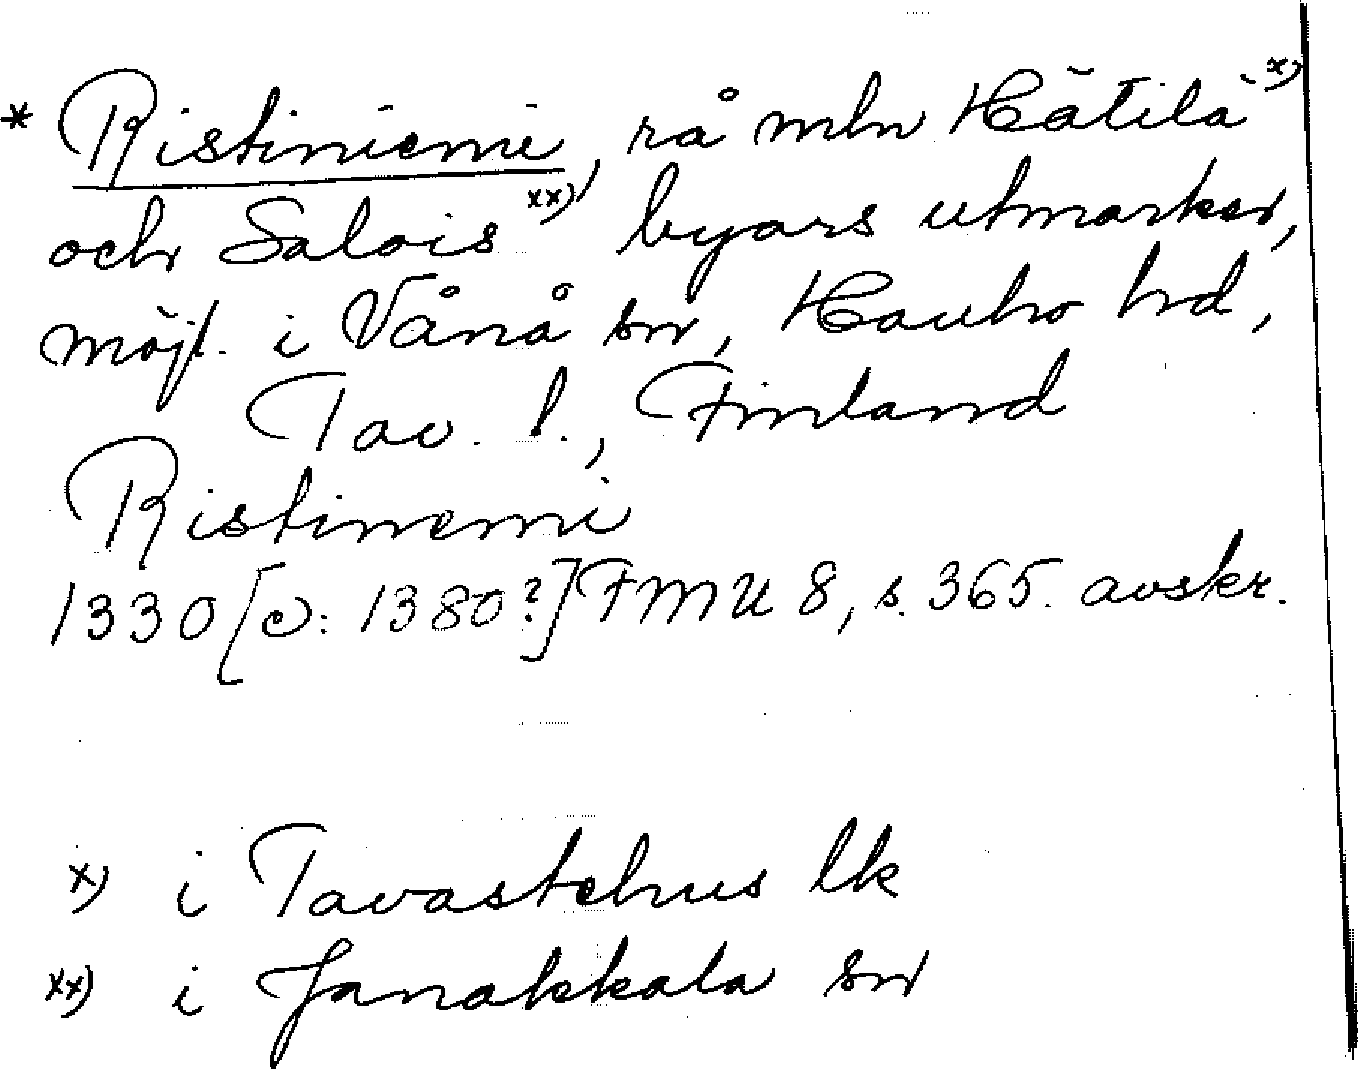 * Ristiniemi, rå mln Hätilä x)
och Salois xx), byars utmarker,
möjl. i Vånå sn, Hauho hd,
Tav. l., Finland
Ristinemi
1330 [ɔ: 1380?] FMU 8, s. 365. avskr.
x) i Tavastehus lk
xx) i Janakkala sn